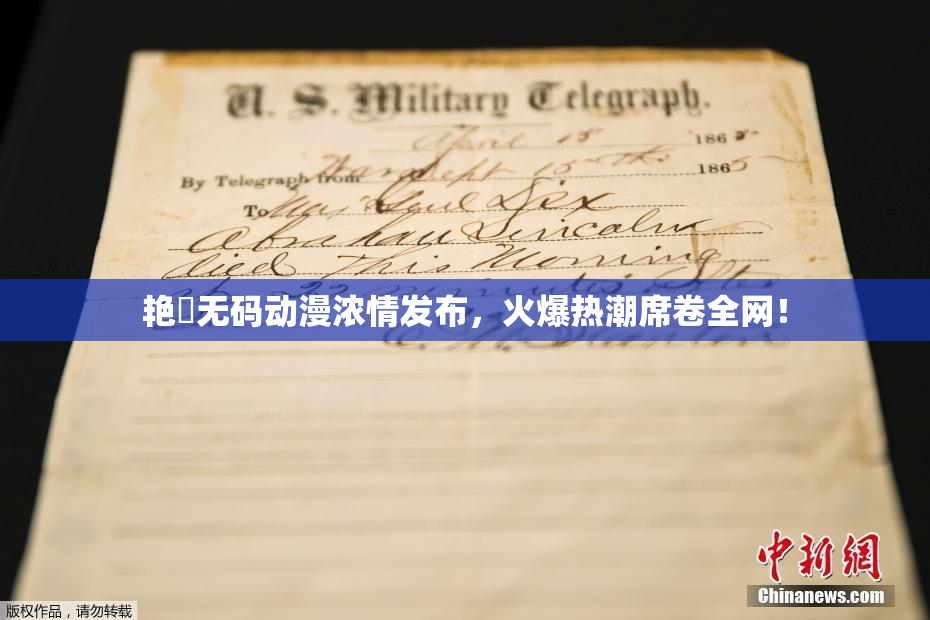 U. S. Military Telegraph.
April 15 1865
By Telegraph from War Dept 15th 1865
To Maj Genl Dix
Abraham Lincoln
died This Morning
22 minutes after
艳无码动漫浓情发布，火爆热潮席卷全网！
E. M. Stanton
中新网
Chinanews.com
版权作品，请勿转载